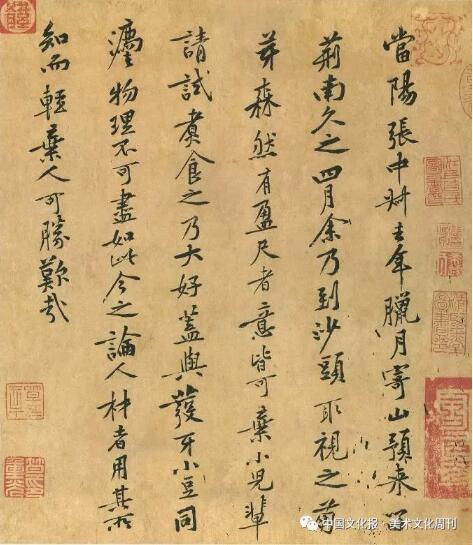 當陽張中叔去年臘月寄山預來留
荊南久之四月余乃到沙頭取視之萌
芽森然有盈尺者意皆可棄小兒輩
請試煮食之乃大好蓋與發牙小豆同
瀍物理不可盡如此今之論人材者用其所
知而輕棄人可勝歎哉
中国文化报·美术文化周刊